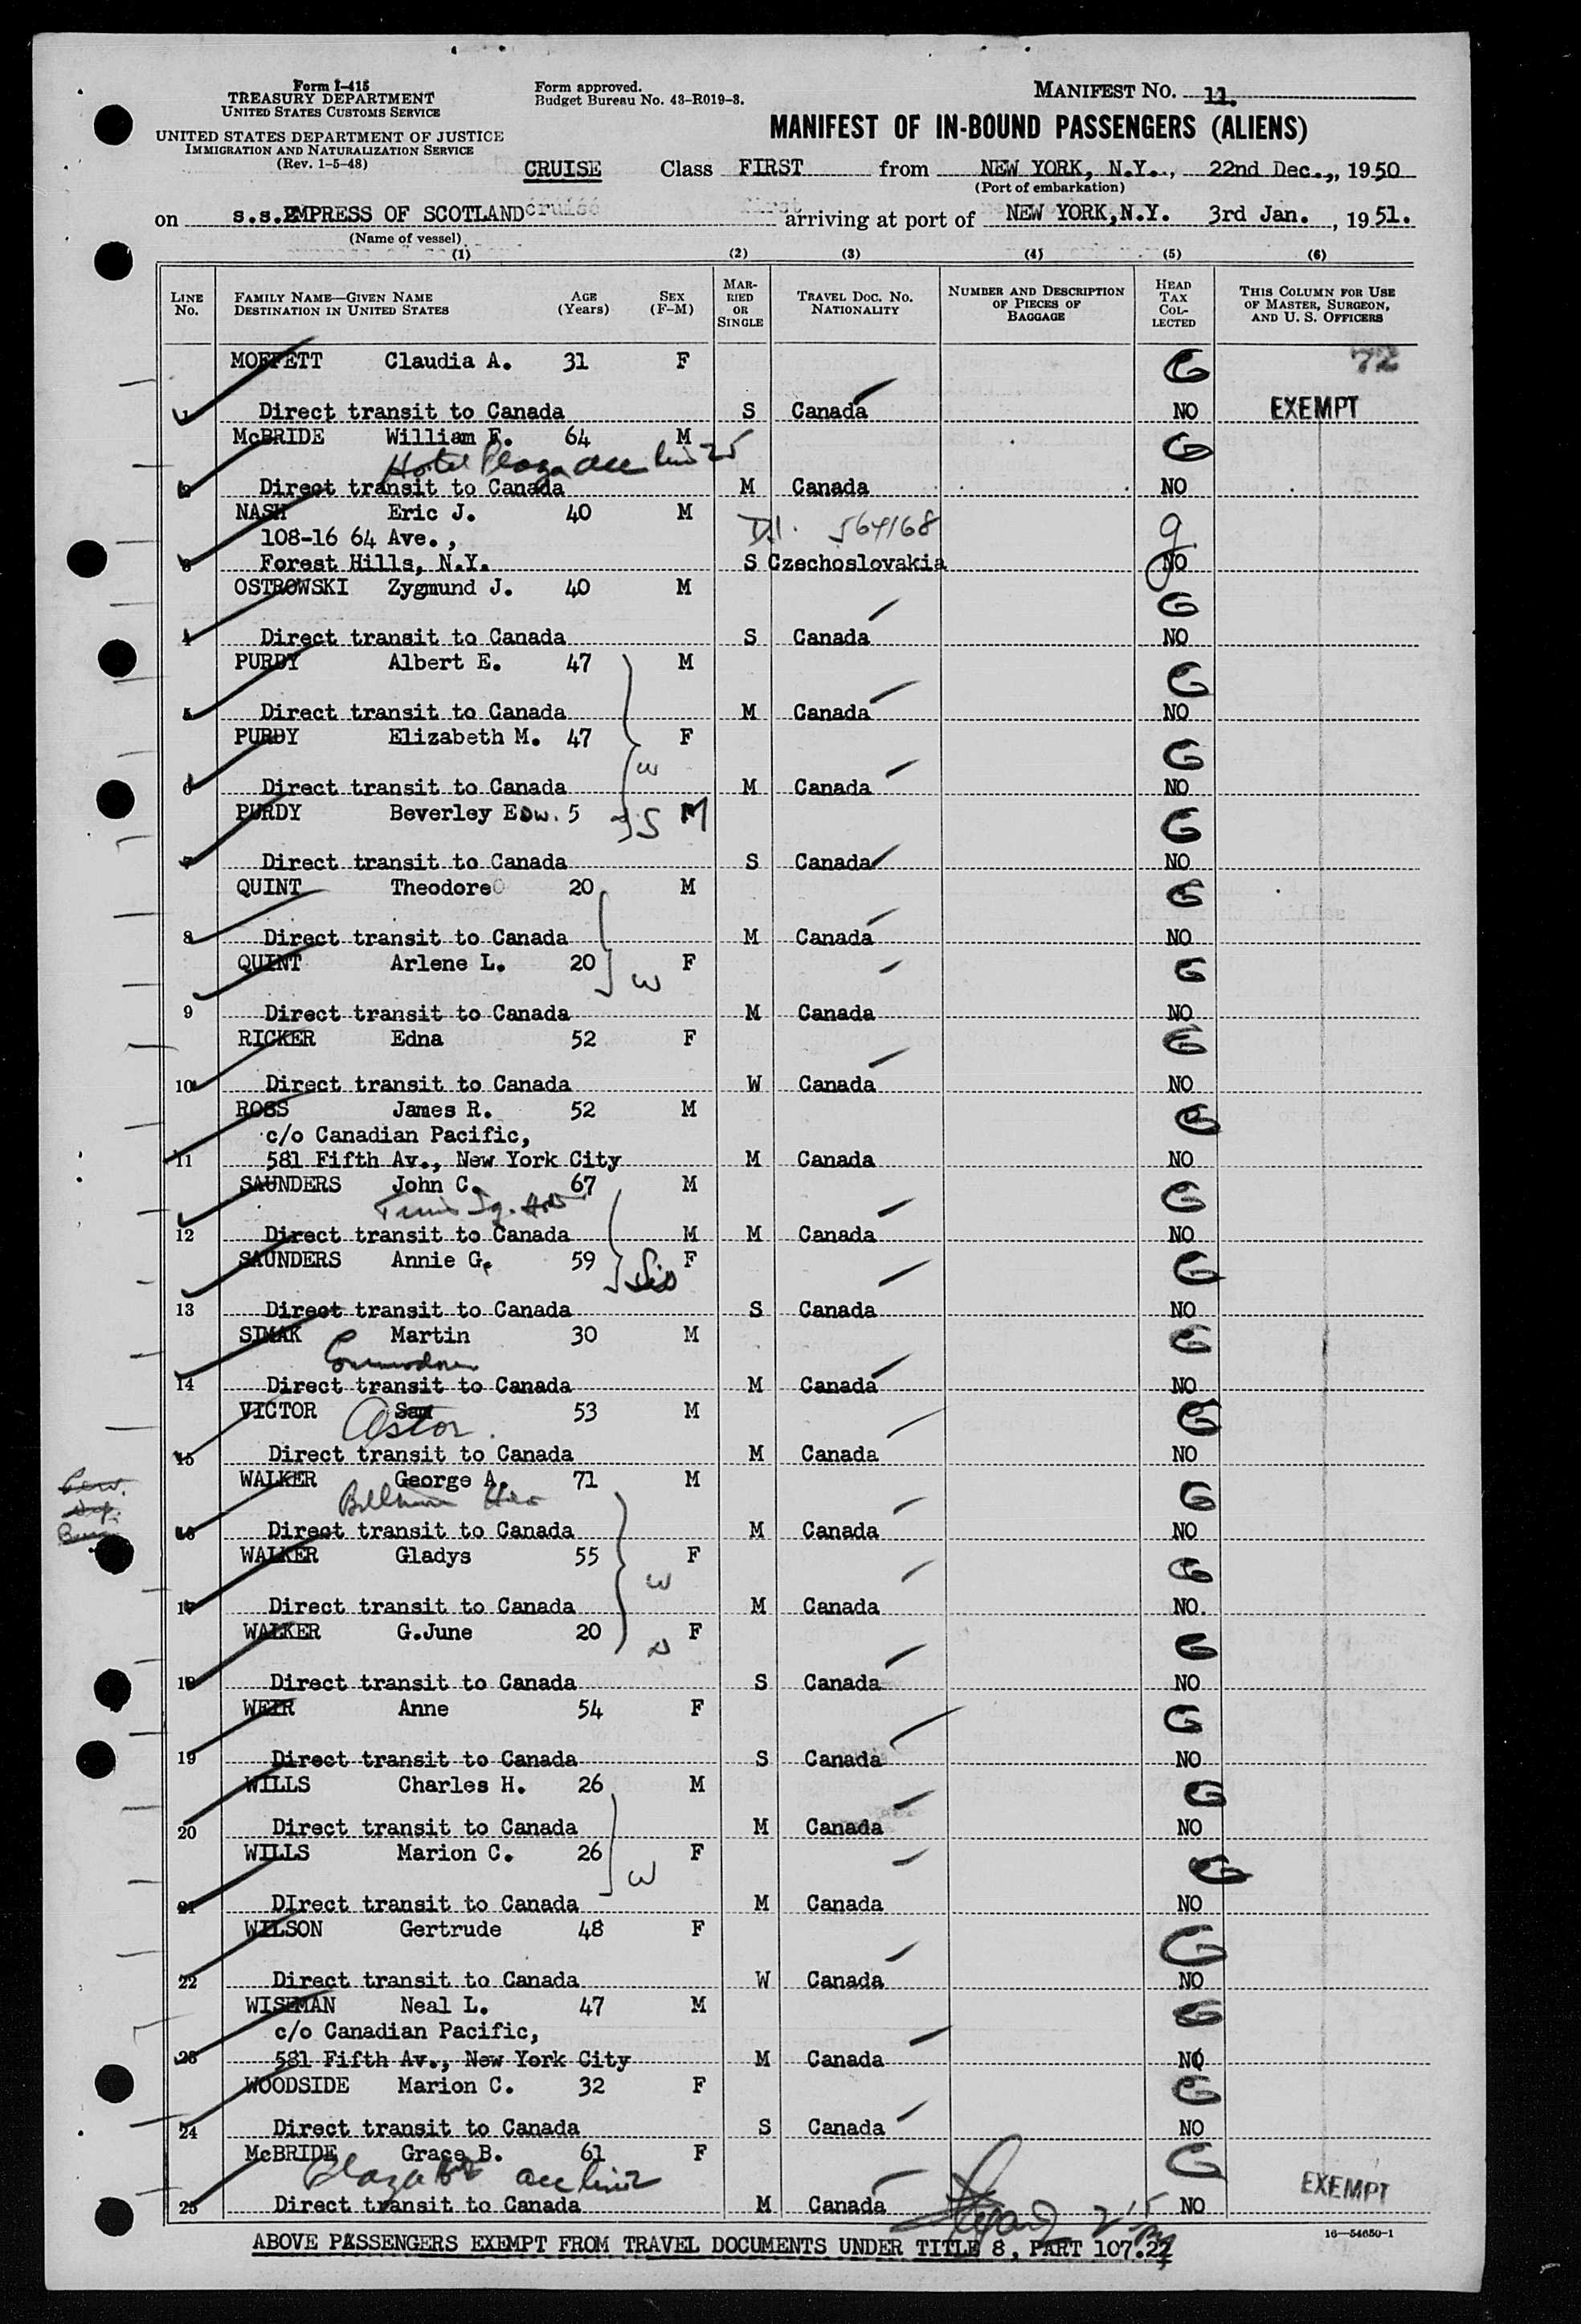 Form I-415
TREASURY DEPARTMENT
UNITED STATES CUSTOMS SERVICE
UNITED STATES DEPARTMENT OF JUSTICE
IMMIGRATION AND NATURALIZATION SERVICE
(Rev. 1-5-48)
Form approved.
Budget Bureau No. 43-R019-3.
MANIFEST NO. 11.
MANIFEST OF IN-BOUND PASSENGERS (ALIENS)
CRUISE Class FIRST from NEW YORK, N.Y., 22nd Dec., 1950
(Port of embarkation)
on s.s.EMPRESS OF SCOTLAND arriving at port of NEW YORK,N.Y. 3rd Jan. , 1951.
(Name of vessel)
(1) (2) (3) (4) (5) (6)
LINE No. FAMILY NAME—GIVEN NAME DESTINATION IN UNITED STATES AGE (Years) SEX (F-M) MARRIED OR SINGLE TRAVEL DOC. NO. NATIONALITY NUMBER AND DESCRIPTION OF PIECES OF BAGGAGE HEAD TAX COLLECTED THIS COLUMN FOR USE OF MASTER, SURGEON, AND U. S. OFFICERS
MOFFETT Claudia A. 31 F G 72
1 Direct transit to Canada S Canada NO EXEMPT
McBRIDE William F. 64 M G
Hotel Plaza acc line 25
2 Direct transit to Canada M Canada NO
NASH Eric J. 40 M D.I. 564168
108-16 64 Ave.,
3 Forest Hills, N.Y. S Czechoslovakia NO
OSTROWSKI Zygmund J. 40 M G
4 Direct transit to Canada S Canada NO
PURDY Albert E. 47 M G
5 Direct transit to Canada M Canada NO
PURDY Elizabeth M. 47 F G
W
6 Direct transit to Canada M Canada NO
PURDY Beverley Edw. 5 S M G
7 Direct transit to Canada S Canada NO
QUINT Theodore 20 M G
8 Direct transit to Canada M Canada NO
QUINT Arlene L. 20 W F G
9 Direct transit to Canada M Canada NO
RICKER Edna 52 F G
10 Direct transit to Canada W Canada NO
ROSS James R. 52 M G
c/o Canadian Pacific,
11 581 Fifth Av., New York City M Canada NO
SAUNDERS John C. 67 M G
12 Direct transit to Canada M M Canada NO
SAUNDERS Annie G. 59 Sis F G
13 Direct transit to Canada S Canada NO
SIMAK Martin 30 M G
Commodore
14 Direct transit to Canada M Canada NO
VICTOR Sam 53 M G
Astor.
15 Direct transit to Canada M Canada NO
WALKER George A. 71 M G
16 Direct transit to Canada M Canada NO
WALKER Gladys 55 F G
W
17 Direct transit to Canada M Canada NO.
WALKER G.June 20 F G
18 Direct transit to Canada S Canada NO
WEIR Anne 54 F G
19 Direct transit to Canada S Canada NO
WILLS Charles H. 26 M G
20 Direct transit to Canada M Canada NO
WILLS Marion C. 26 W F G
21 DIrect transit to Canada M Canada NO
WILSON Gertrude 48 F G
22 Direct transit to Canada W Canada NO
WISEMAN Neal L. 47 M G
c/o Canadian Pacific,
23 581 Fifth Av., New York City M Canada NO
WOODSIDE Marion C. 32 F G
24 Direct transit to Canada S Canada NO
McBRIDE Grace B. 61 F G
Plaza acc line 2
25 Direct transit to Canada M Canada NO EXEMPT
16—54650-1
ABOVE PASSENGERS EXEMPT FROM TRAVEL DOCUMENTS UNDER TITLE 8, PART 107.22